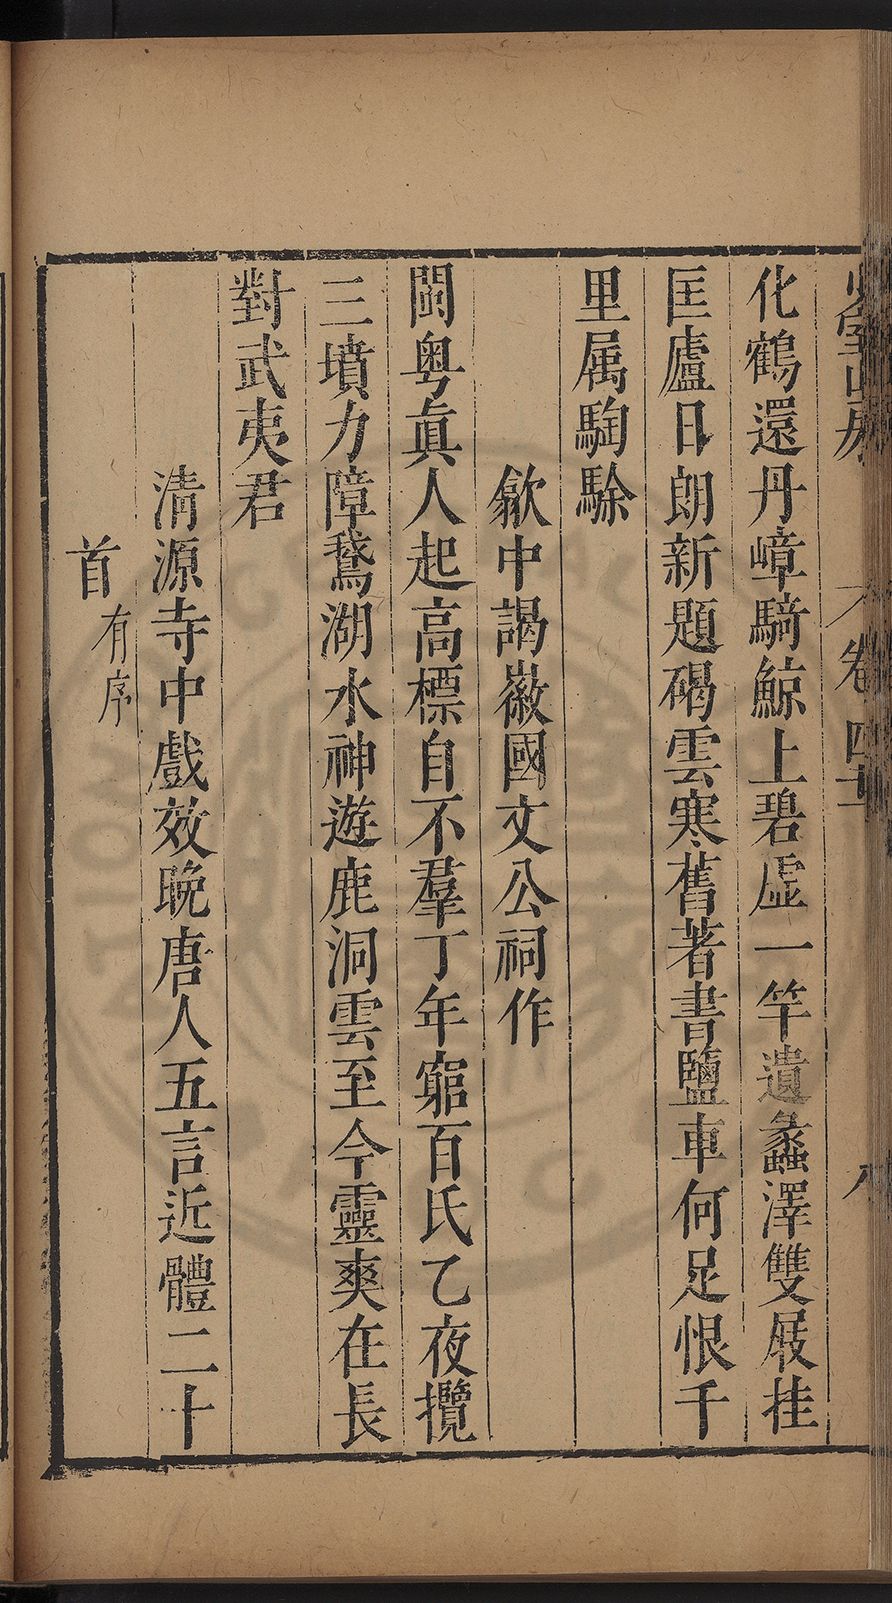 化鶴還丹嶂騎鯨上碧虛一竿遺蠡澤雙屐挂
匡廬日朗新題碣雲寒舊著書鹽車何足恨千
里属騊駼
歙中謁徽國文公祠作
閩粤眞人起高標自不羣丁年窮百氏乙夜攬
三墳力障鵞湖水神遊鹿洞雲至今靈爽在長
對武夷君
清源寺中戲效晚唐人五言近體二十
首有序
卷四十
八